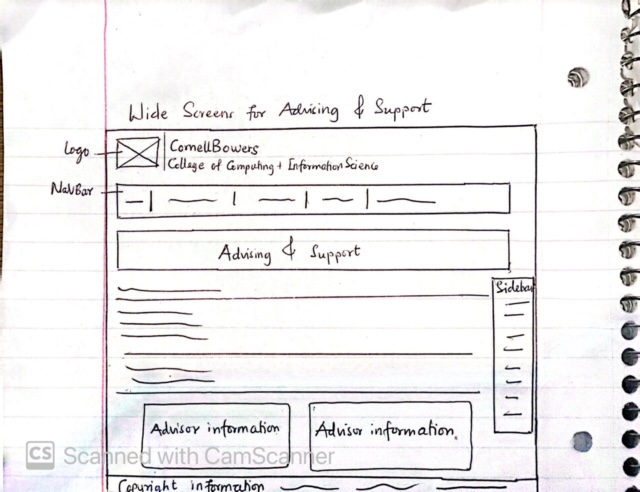 Wide Screens for Advising & Support
Logo
CornellBowers
College of Computing + Information Science
NavBar
Advising & Support
Sidebar
Advisor information
Advisor information.
CS Scanned with CamScanner
Copyright information